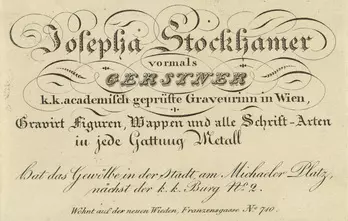 Josepha Stockhamer
vormals
GERSTNER
k.k. academisch geprüfte Graveurinn in Wien,
Gravirt Figuren, Wappen und alle Schrift-Arten
in jede Gattung Metall
Hat das Gewölbe in der Stadt, am Michaeler-Platz,
nächst der k.k. Burg Nº 2.
Wohnt auf der neuen Wieden, Franzensgasse Nº 710.